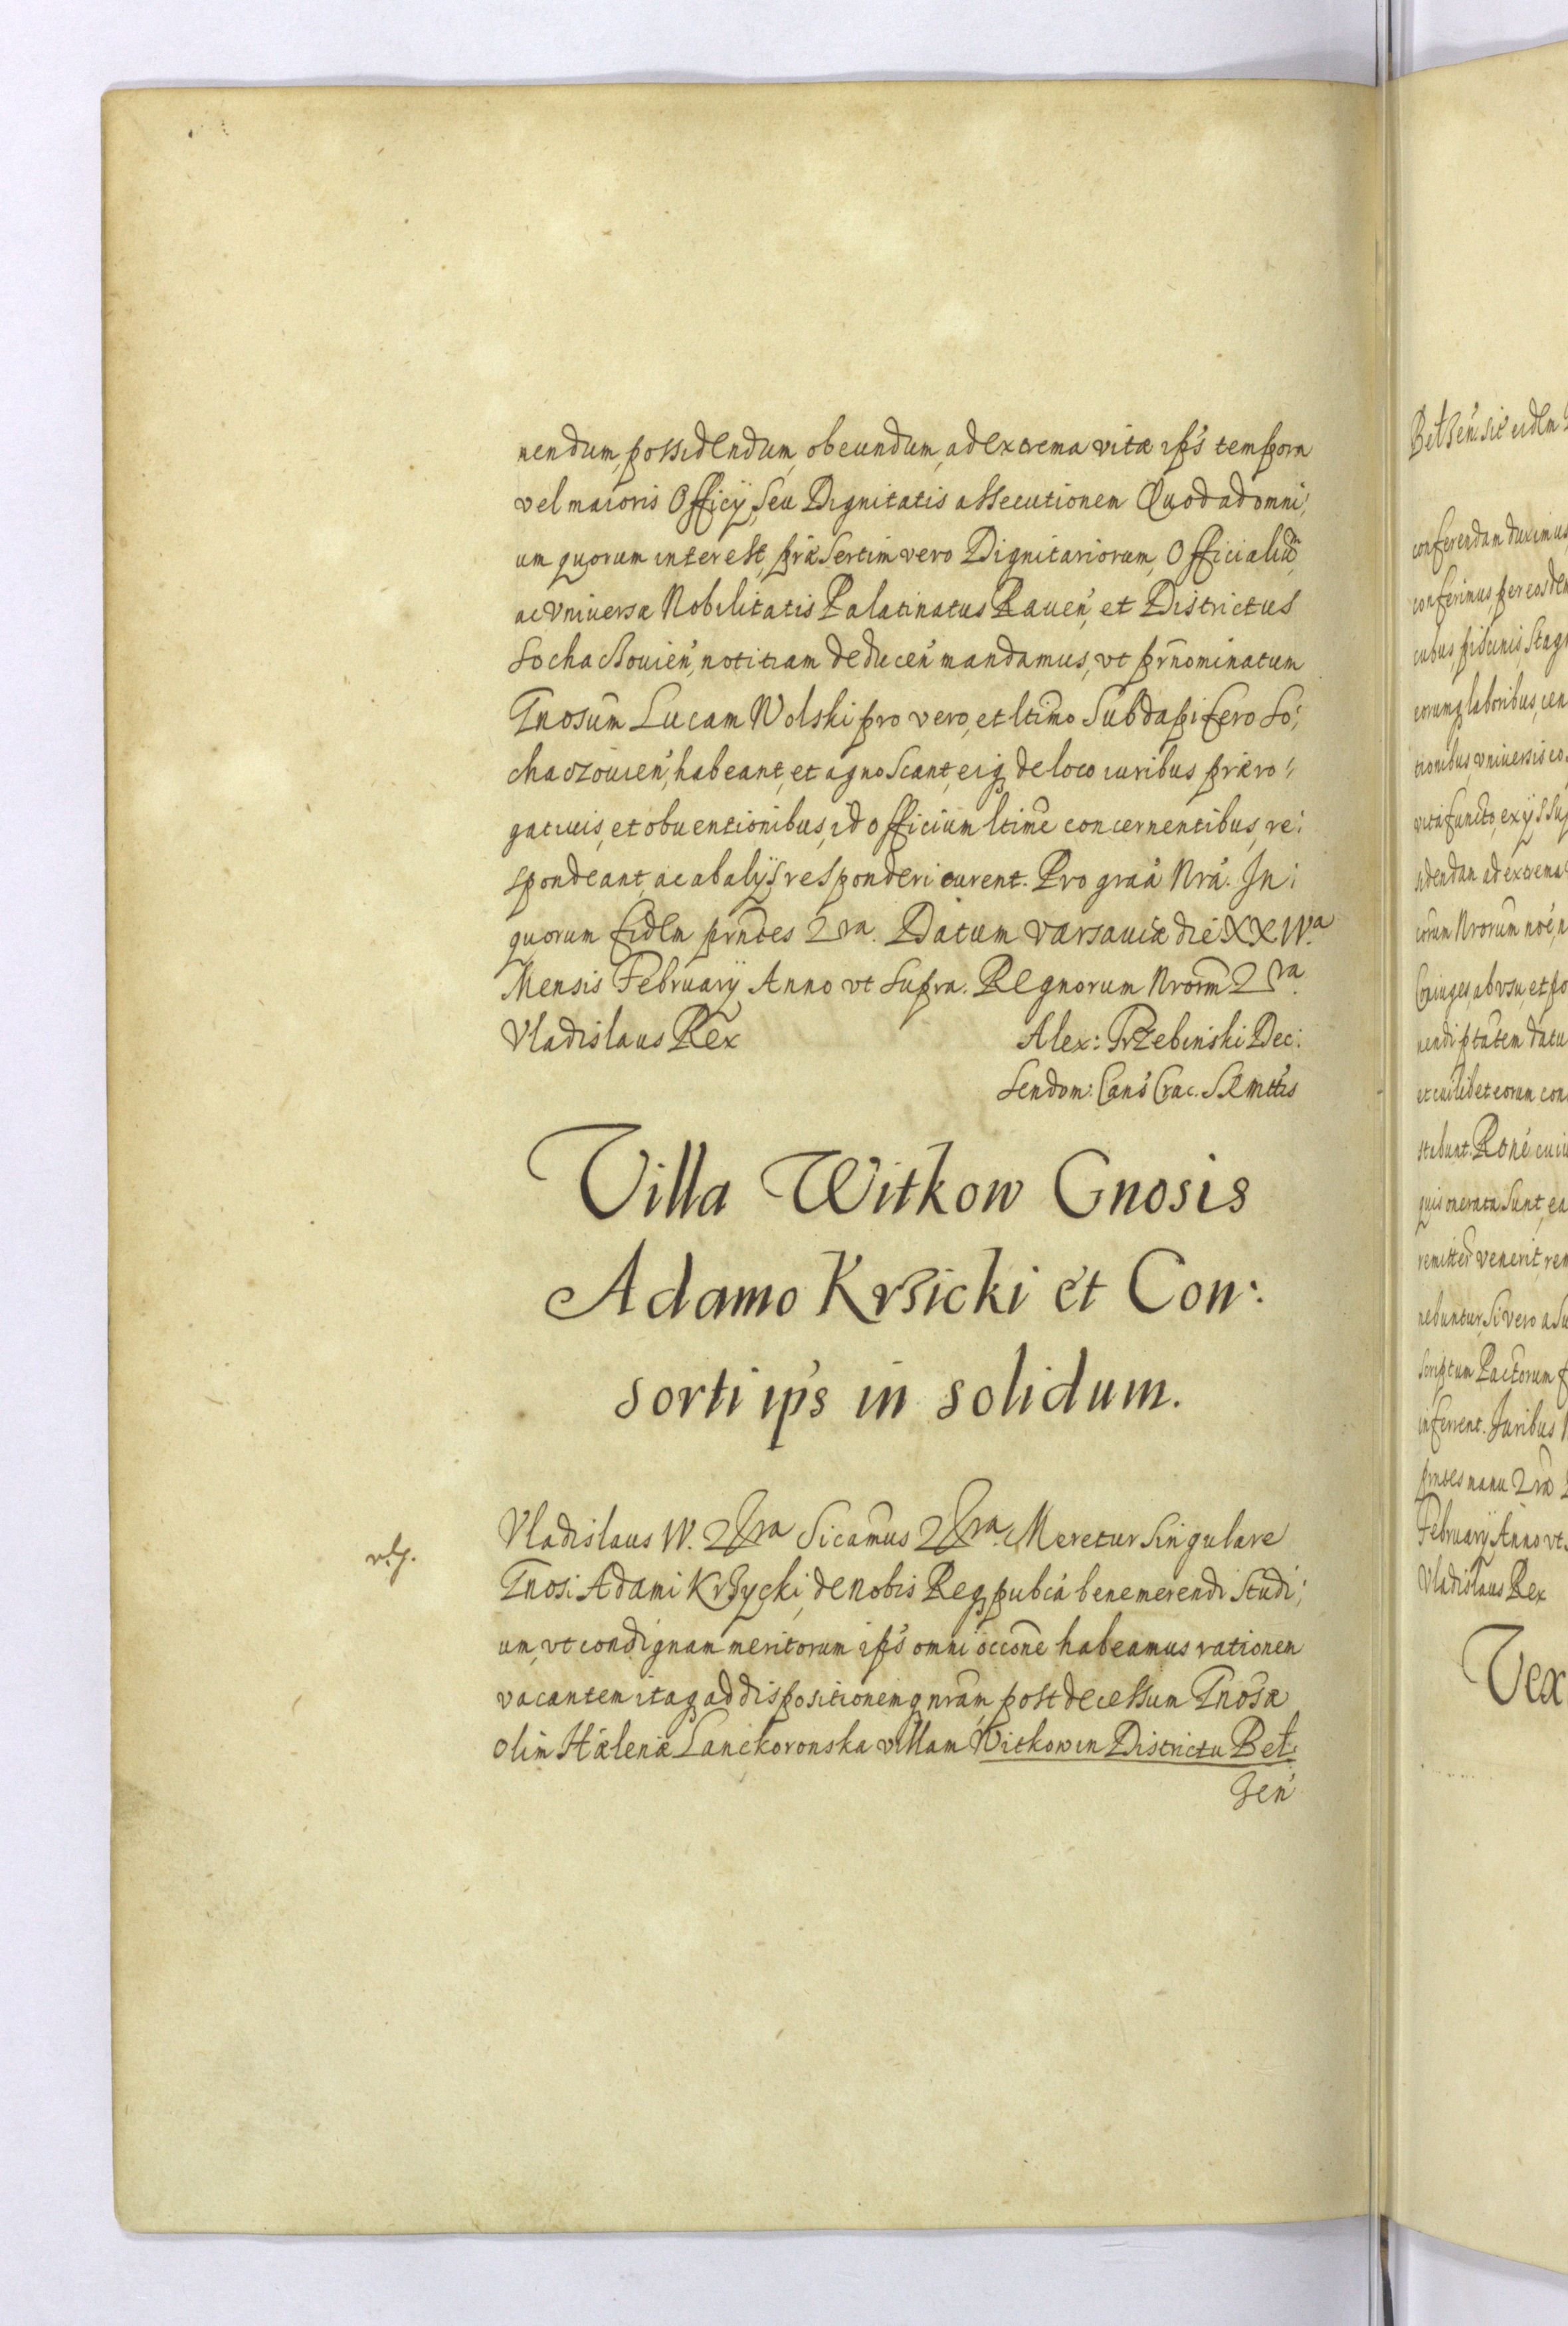 nendum, possidendum, obeundum, ad extrema vitæ ips's tempora
vel maioris Officÿ, seu Dignitatis assecutionem Quod ad omni,
um quorum interest, præsertim vero Dignitariorum, Officialiu,
ac vniversæ Nobilitatis Palatinatus Rauen', et Districtus
Sochaczouien', notitiam deducen' mandamus, vt prnominatum
Gnosum Lucam Wolski pro vero, et ltimo Subdapifero So:
chaczouien', habeant, et agnoscant, eiq de loco iuribus præro:
gatiuis, et obuentionibus, id officium ltime concernentibus, re:
spondeant, ac ab alijs responderi curent. Pro graa Nra. In:
quorum fidem prntes 2ra. Datum varsauiæ die XXIV.a
Mensis Februarÿ Anno vt supra. Regnorum Nrorm 2ra.
Vladislaus Rex Alex: Trzebinski Dec:
Sendom: Can's Crac. S.R. Mttis
Villa Witkow Gnosis
Adamo Krzicki et Con:
sorti ip's in solidum.
Vladislaus IV. 2ra Sicamus 2ra. Meretur singulare
Gnosi Adami Krzycki, de nobis Req pubca bene merendi studi:
um, vt condignam meritorum ips's omni occone habeamus rationem
vacantem itaq ad dispositionemq nram, post decessum Gnosæ
olim Hælenæ Lanckoronska villam Witkow in Districtu Beł:
zen'
Bełzen' sit eidem
conferendam duximus
conferimus, per eosdem
cubus, piscinis, stagn
eorumq laboribus, cen
tionibus, vniuersis eo
vita functo, ex ÿs su
sidendam ad extrema
corum Nrorum noe, n
Coniuges, ab vsu, et po
nendi ptatem datu
et cuilibet eorum con
stabunt. Rone, cuiu
quis onerata sunt, ea
remitter venerit, rem
nebuntur, Si vero a su
scriptum Pactorum
inferrent. Juribus
prntes manu 2ra
Februarÿ Anno vt
Vladislaus Rex
Vex